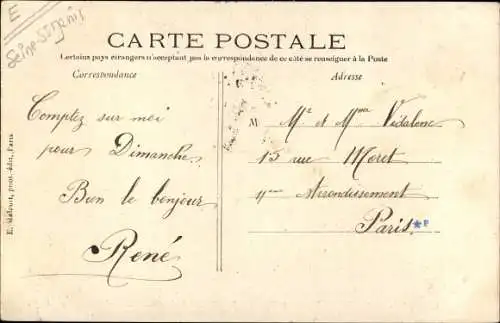 E
Seine-St Denis
CARTE POSTALE
Certains pays étrangers n'acceptant pas la correspondance de ce côté se renseigner à la Poste
Correspondance
Adresse
Comptez sur moi
pour Dimanche
Bien le bonjour
René
M Mr et Mme Vidalenc
15 rue Moret
11me Arrondissement
Paris
*P
E. Malcuit, phot.-édit., Paris